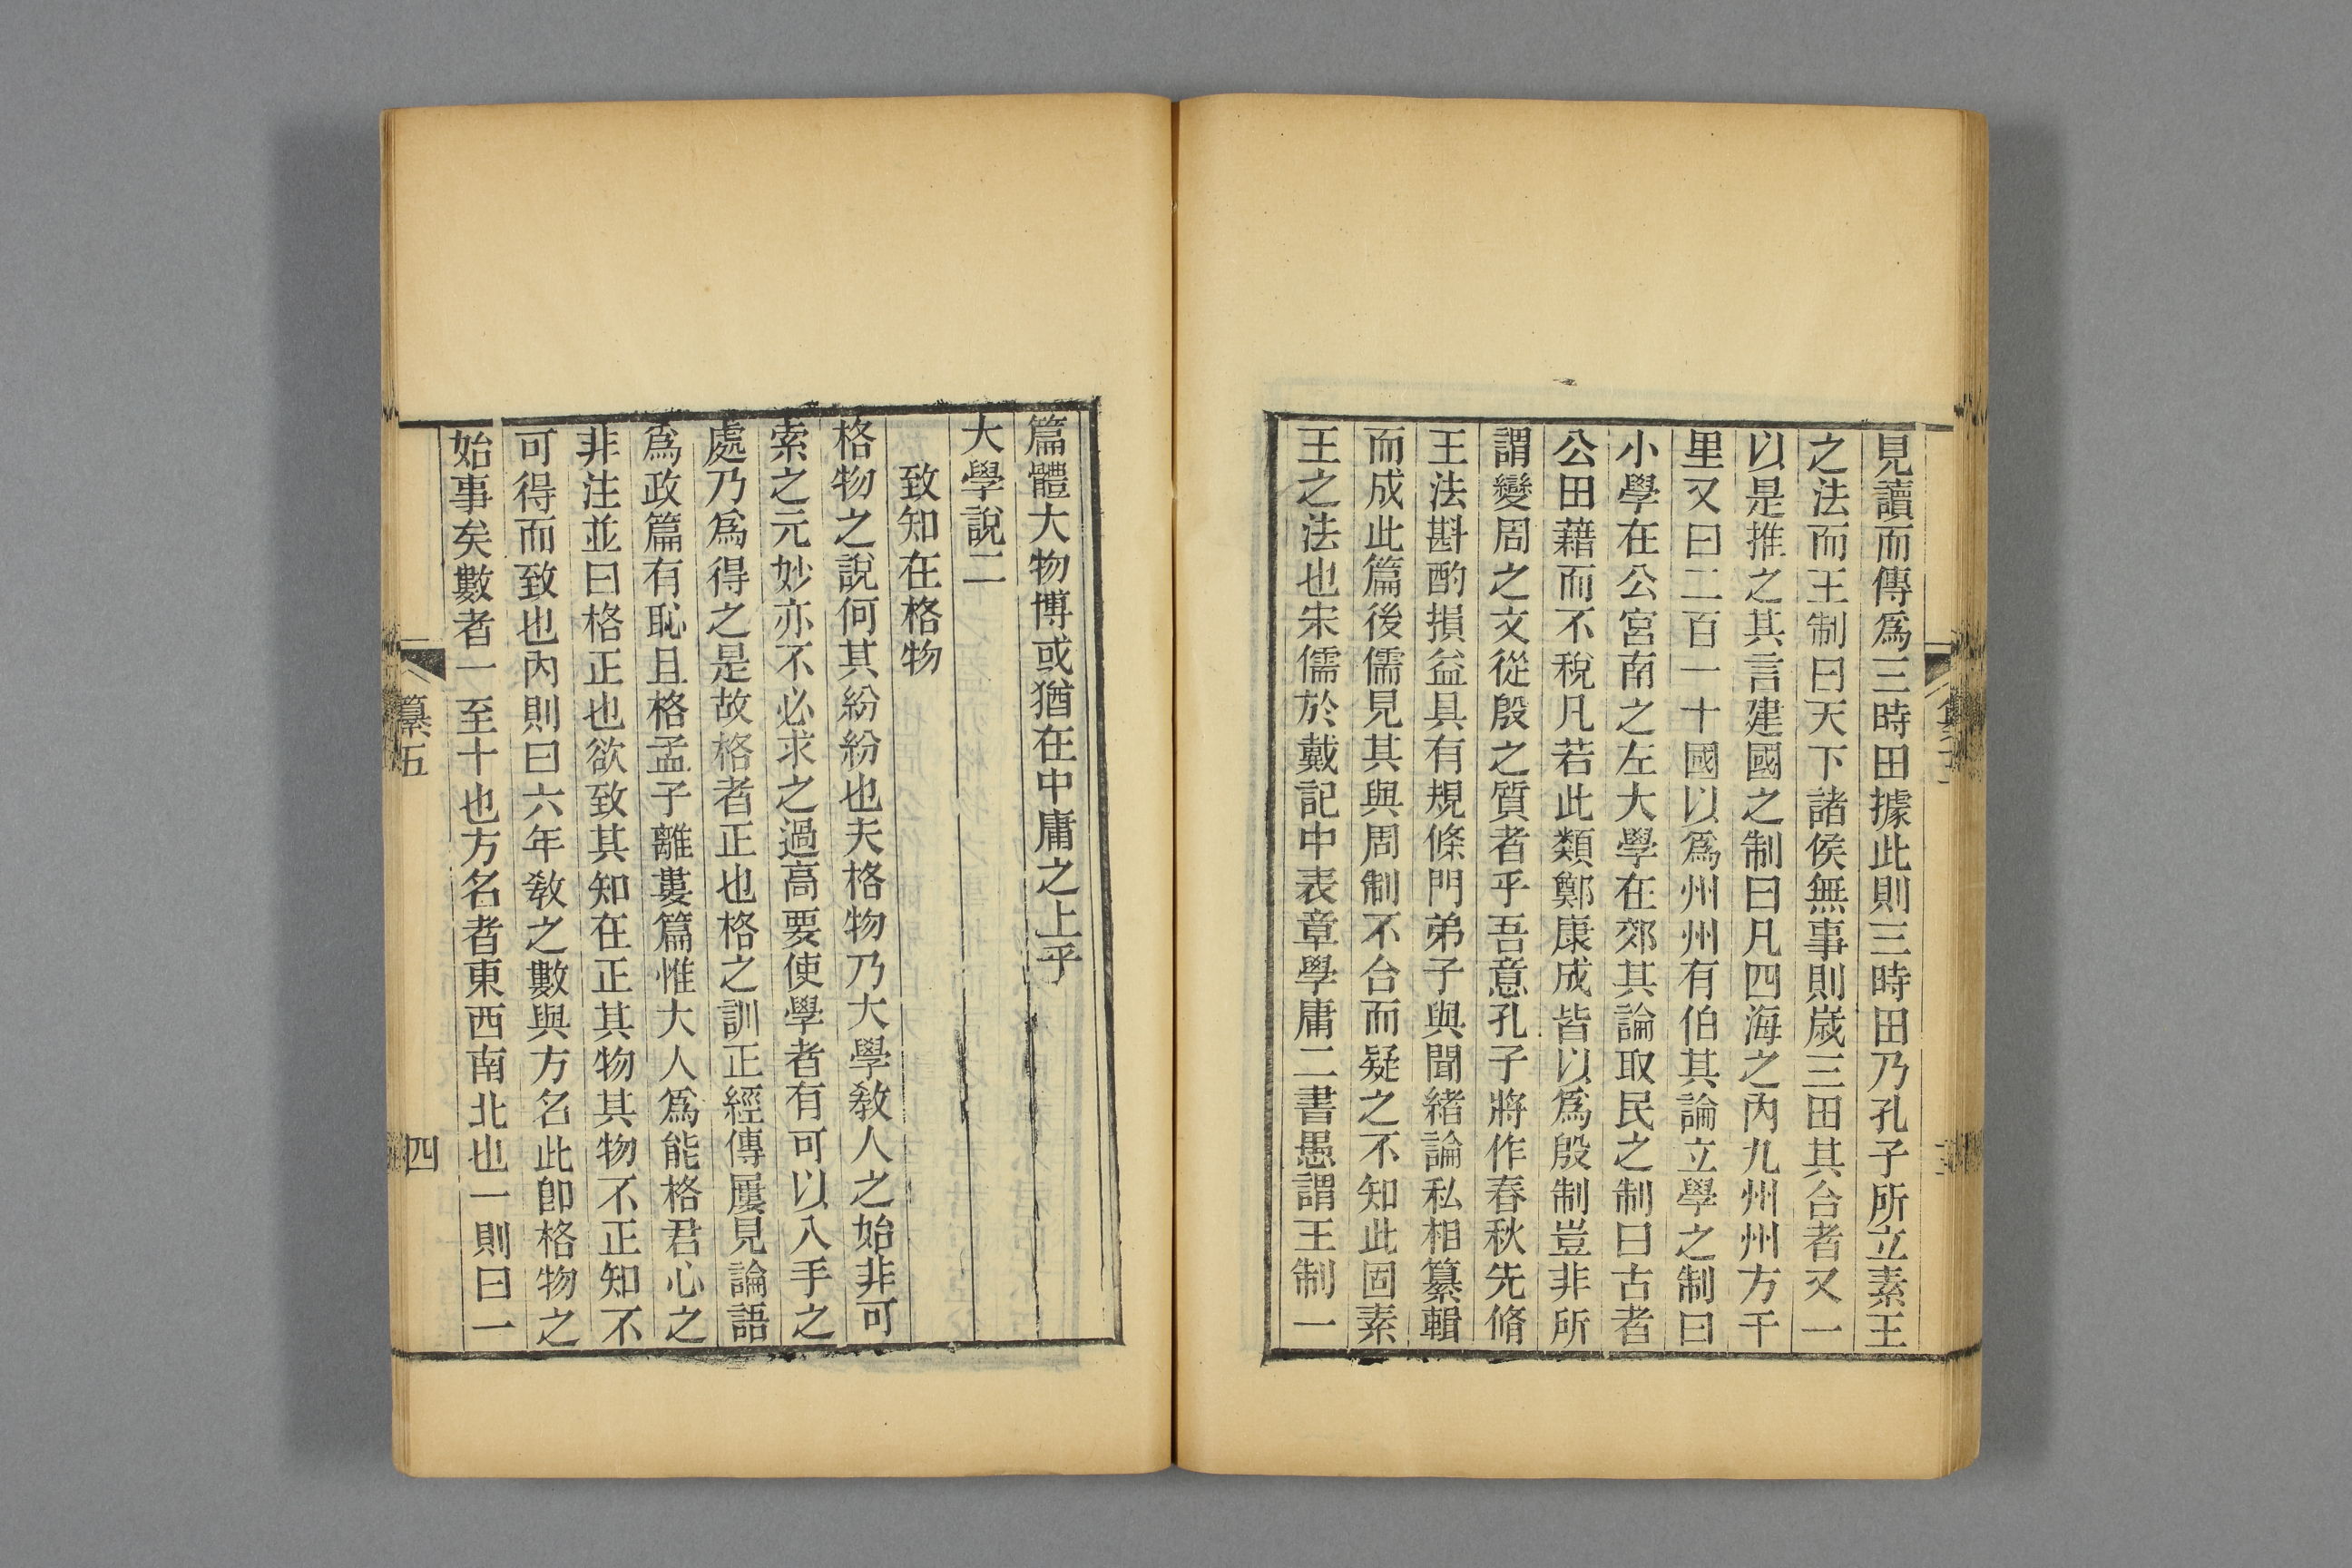 見讀而傳爲三時田據此則三時田乃孔子所立素王
之法而王制曰天下諸侯無事則歲三田其合者又一
以是推之其言建國之制曰凡四海之內九州州方千
里又曰二百一十國以爲州州有伯其論立學之制曰
小學在公宮南之左大學在郊其論取民之制曰古者
公田藉而不稅凡若此類鄭康成皆以爲殷制豈非所
謂變周之文從殷之質者乎吾意孔子將作春秋先脩
王法斟酌損益具有規條門弟子與聞緒論私相纂輯
而成此篇後儒見其與周制不合而疑之不知此固素
王之法也宋儒於戴記中表章學庸二書愚謂王制一
篇體大物博或猶在中庸之上乎
大學說二
致知在格物
格物之說何其紛紛也夫格物乃大學敎人之始非可
索之元妙亦不必求之過高要使學者有可以入手之
處乃爲得之是故格者正也格之訓正經傳屢見論語
爲政篇有恥且格孟子離婁篇惟大人爲能格君心之
非注並曰格正也欲致其知在正其物其物不正知不
可得而致也內則曰六年敎之數與方名此卽格物之
始事矣數者一至十也方名者東西南北也一則曰一
纂五
四